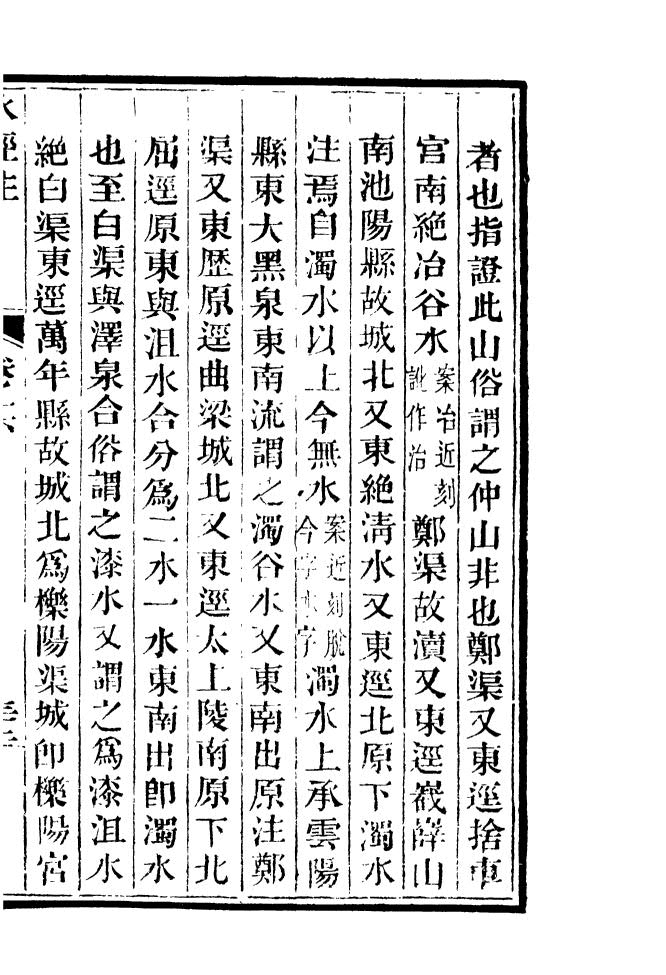 者也指證此山俗謂之仲山非也鄭渠又東逕捨車
宮南絶冶谷水案冶近刻訛作治鄭渠故瀆又東逕嶻嶭山
南池陽縣故城北又東絶清水又東逕北原下濁水
注焉自濁水以上今無水案近刻脫今字水字濁水上承雲陽
縣東大黑泉東南流謂之濁谷水又東南出原注鄭
渠又東歷原逕曲梁城北又東逕太上陵南原下北
屈逕原東與沮水合分爲二水一水東南出卽濁水
也至白渠與澤泉合俗謂之漆水又謂之爲漆沮水
絶白渠東逕萬年縣故城北爲櫟陽渠城卽櫟陽宮
水經注